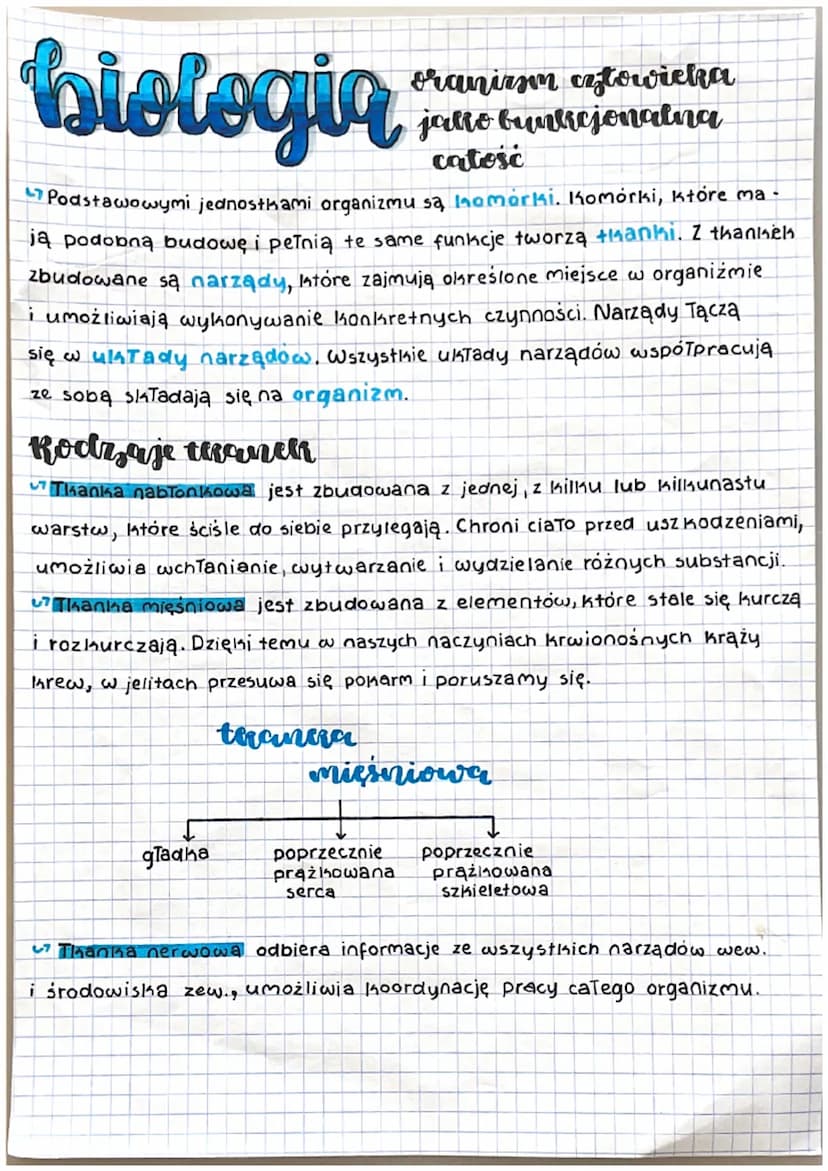 biologia
oranizm człowieka
jako funkcjonalna
całość
↪ Podstawowymi jednostkami organizmu są komórki. Komórki, które ma-
ją podobną budowę i pełnią te same funkcje tworzą tkanki. Z tkanek
zbudowane są narządy, które zajmują określone miejsce w organiźmie
i umożliwiają wykonywanie konkretnych czynności. Narządy łączą
się w układy narządów. Wszystkie układy narządów współpracują
ze sobą składają się na organizm.
Rodzaje tkanek
↪ Tkanka nabłonkowa jest zbudowana z jednej, z kilku lub kilkunastu
warstw, które ściśle do siebie przylegają. Chroni ciało przed uszkodzeniami,
umożliwia wchłanianie, wytwarzanie i wydzielanie różnych substancji.
↪ Tkanka mięśniowa jest zbudowana z elementów, które stale się kurczą
i rozkurczają. Dzięki temu w naszych naczyniach krwionośnych krąży
krew, w jelitach przesuwa się pokarm i poruszamy się.
tkanka
mięśniowa
gładka poprzecznie poprzecznie
prążkowana prążkowana
serca szkieletowa
↪ Tkanka nerwowa odbiera informacje ze wszystkich narządów wew.
i środowiska zew., umożliwia koordynację pracy całego organizmu.